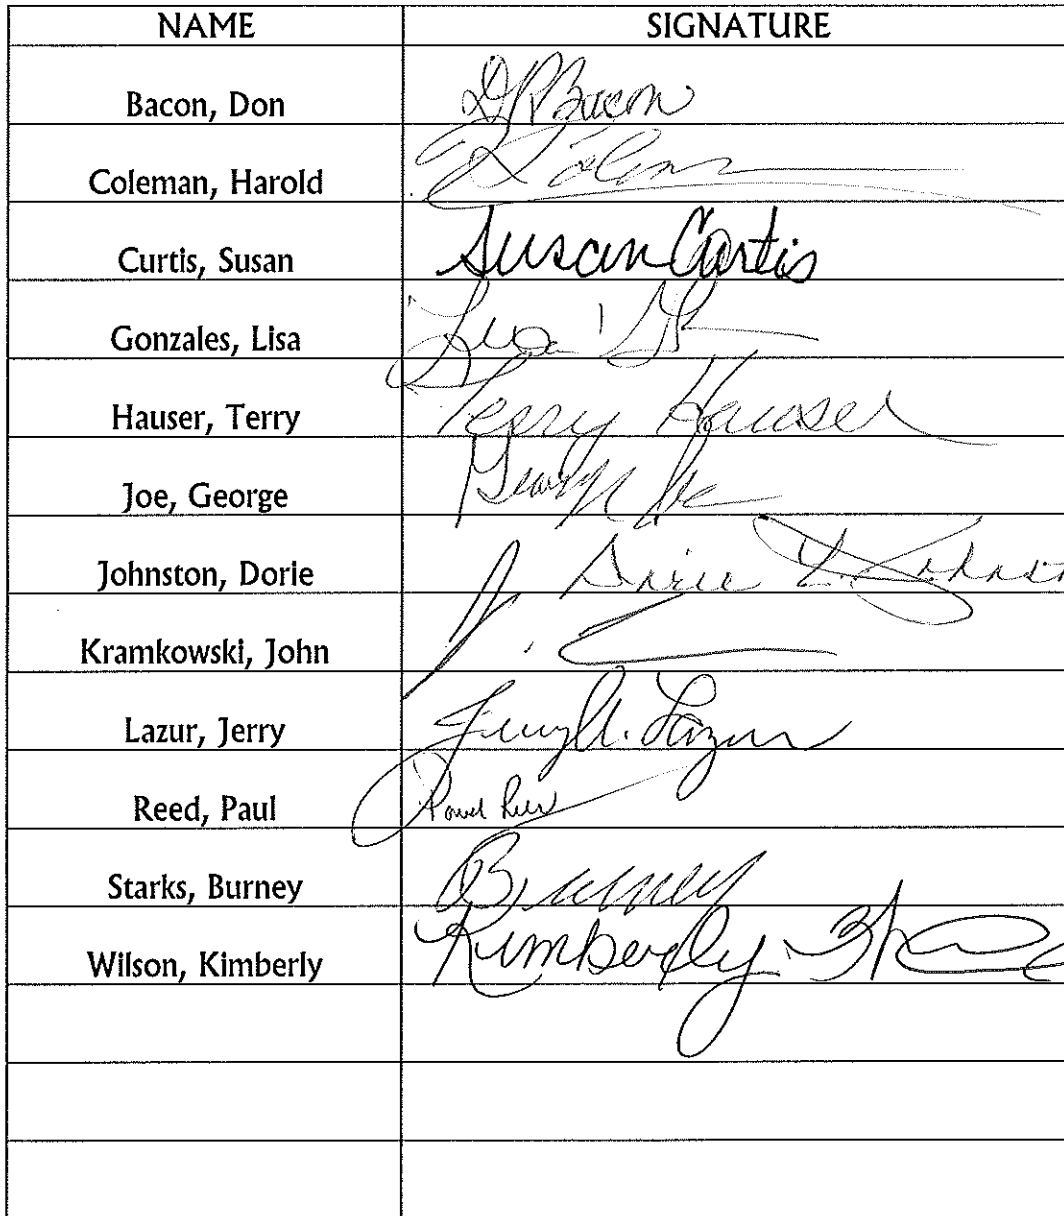 NAME SIGNATURE
Bacon, Don DRBacon
Coleman, Harold
Curtis, Susan Susan Curtis
Gonzales, Lisa Lisa
Hauser, Terry Terry Hauser
Joe, George George Joe
Johnston, Dorie Dorie L. Johnst
Kramkowski, John J.
Lazur, Jerry Jerry A. Lazur
Reed, Paul Paul Reed
Starks, Burney Burney
Wilson, Kimberly Kimberly